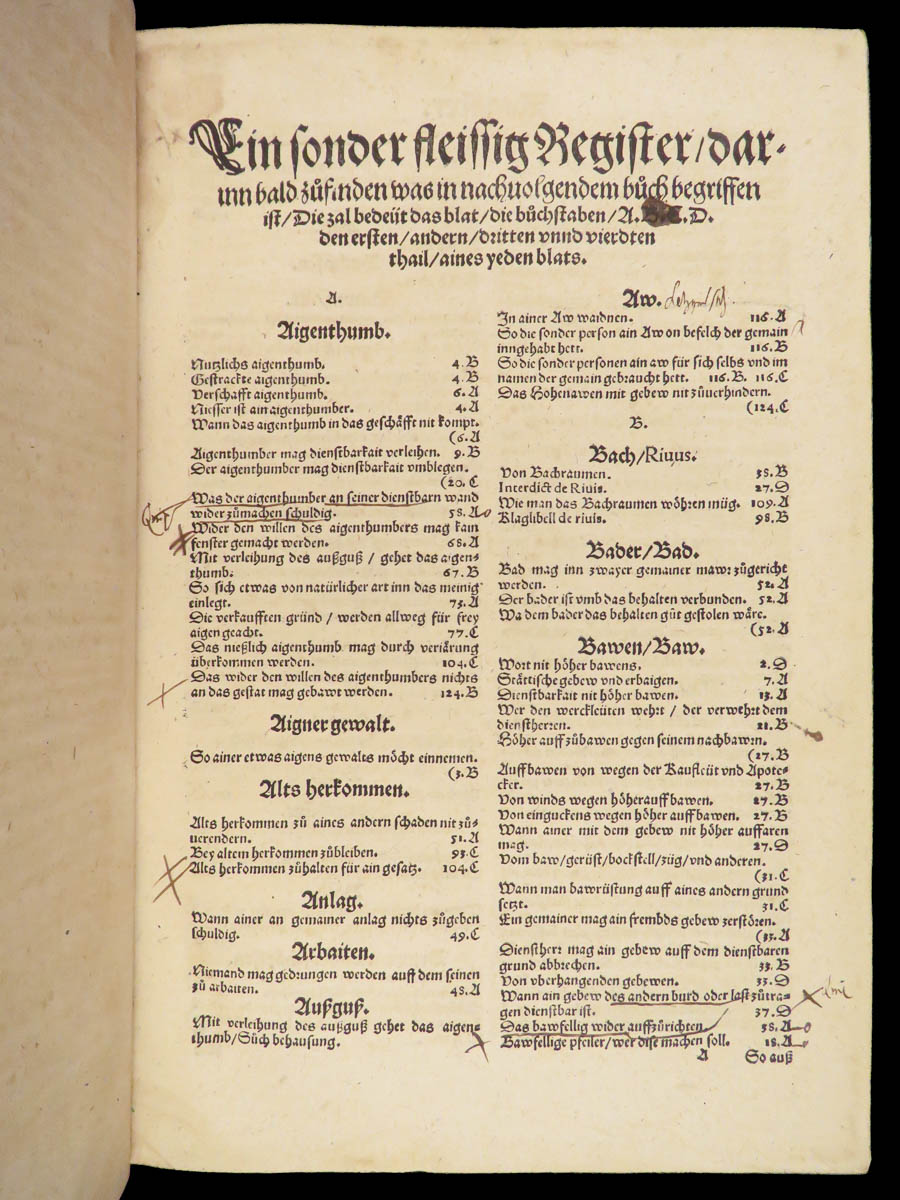 Ein sonder fleissig Register/dar-
inn bald zůfinden was in nachuolgendem bůch begriffen
ist/Die zal bedeüt das blat/die bůchstaben/A. B. C. D.
den ersten/andern/dritten vnnd vierdten
thail/aines yeden blats.
A.
Aigenthumb.
Nutzlichs aigenthumb. 4. B
Gestrackte aigenthumb. 4. B
Verschafft aigenthumb. 6. A
Niesser ist ain aigenthumber. 4. A
Wann das aigenthumb in das geschäfft nit kompt.
(6. A
Aigenthumber mag dienstbarkait verleihen. 9. B
Der aigenthumber mag dienstbarkait vmblegen.
(20. C
Was der aigenthumber an seiner dienstbarn wand
wider zůmachen schuldig. 58. A
Wider den willen des aigenthumbers mag kain
fenster gemacht werden. 68. A
Mit verleihung des außguß / gehet das aigen-
thumb. 67. B
So sich etwas von natürlicher art inn das meinig
einlegt. 75. A
Die verkaufften gründ / werden allweg für frey
aigen geacht. 77. C
Das nießlich aigenthumb mag durch veriärung
überkommen werden. 104. C
Das wider den willen des aigenthumbers nichts
an das gestat mag gebawt werden. 124. B
Aigner gewalt.
So ainer etwas aigens gewalts möcht einnemen.
(3. B
Alts herkommen.
Alts herkommen zů aines andern schaden nit zů-
uerendern. 51. A
Bey altem herkommen zůbleiben. 93. C
Alts herkommen zůhalten für ain gesatz. 104. C
Anlag.
Wann ainer an gemainer anlag nichts zůgeben
schuldig. 49. C
Arbaiten.
Niemand mag gedrungen werden auff dem seinen
zů arbaiten. 48. A
Außguß.
Mit verleihung des außguß gehet das aigen-
thumb/Sůch behausung.
Aw.
In ainer Aw waidnen. 116. A
So die sonder person ain Aw on befelch der gemain
inngehabt hett. 116. B
So die sonder personen ain aw für sich selbs vnd im
namen der gemain gebraucht hett. 116. B. 116. C
Das Hohenawen mit gebew nit zůuerhindern.
(124. C
B.
Bach/Riuus.
Von Bachraumen. 38. B
Interdict de Riuis. 27. D
Wie man das Bachraumen wöhren müg. 109. A
Klaglibell de riuis. 98. B
Bader/Bad.
Bad mag inn zwayer gemainer mawr zůgericht
werden. 52. A
Der bader ist vmb das behalten verbunden. 52. A
Wa dem bader das behalten gůt gestolen wäre.
(52. A
Bawen/Baw.
Wort nit höher bawens. 2. D
Stättische gebew vnd erbaigen. 7. A
Dienstbarkait nit höher bawen. 13. A
Wer den werckleüten wehrt / der verwehrt dem
dienstherren. 21. B
Höher auff zůbawen gegen seinem nachbawrn.
(27. B
Auffbawen von wegen der Kaufleüt vnd Apote-
cker. 27. B
Von winds wegen höherauff bawen. 27. B
Von einguckens wegen höher auff bawen. 27. B
Wann ainer mit dem gebew nit höher auffaren
mag. 27. D
Vom baw/gerüst/bockstell/züg/vnd anderen.
(31. C
Wann man bawrüstung auff aines andern grund
setzt. 31. C
Ein gemainer mag ain frembds gebew zerstören.
(33. A
Dienstherr mag ain gebew auff dem dienstbaren
grund abbrechen. 33. B
Von vberhangenden gebewen. 33. D
Wann ain gebew des andern burd oder last zůtra-
gen dienstbar ist. 37. D
Das bawfellig wider auffzůrichten 58. A
Bawfellige pfeiler/wer dise machen soll. 18. A
A So auß